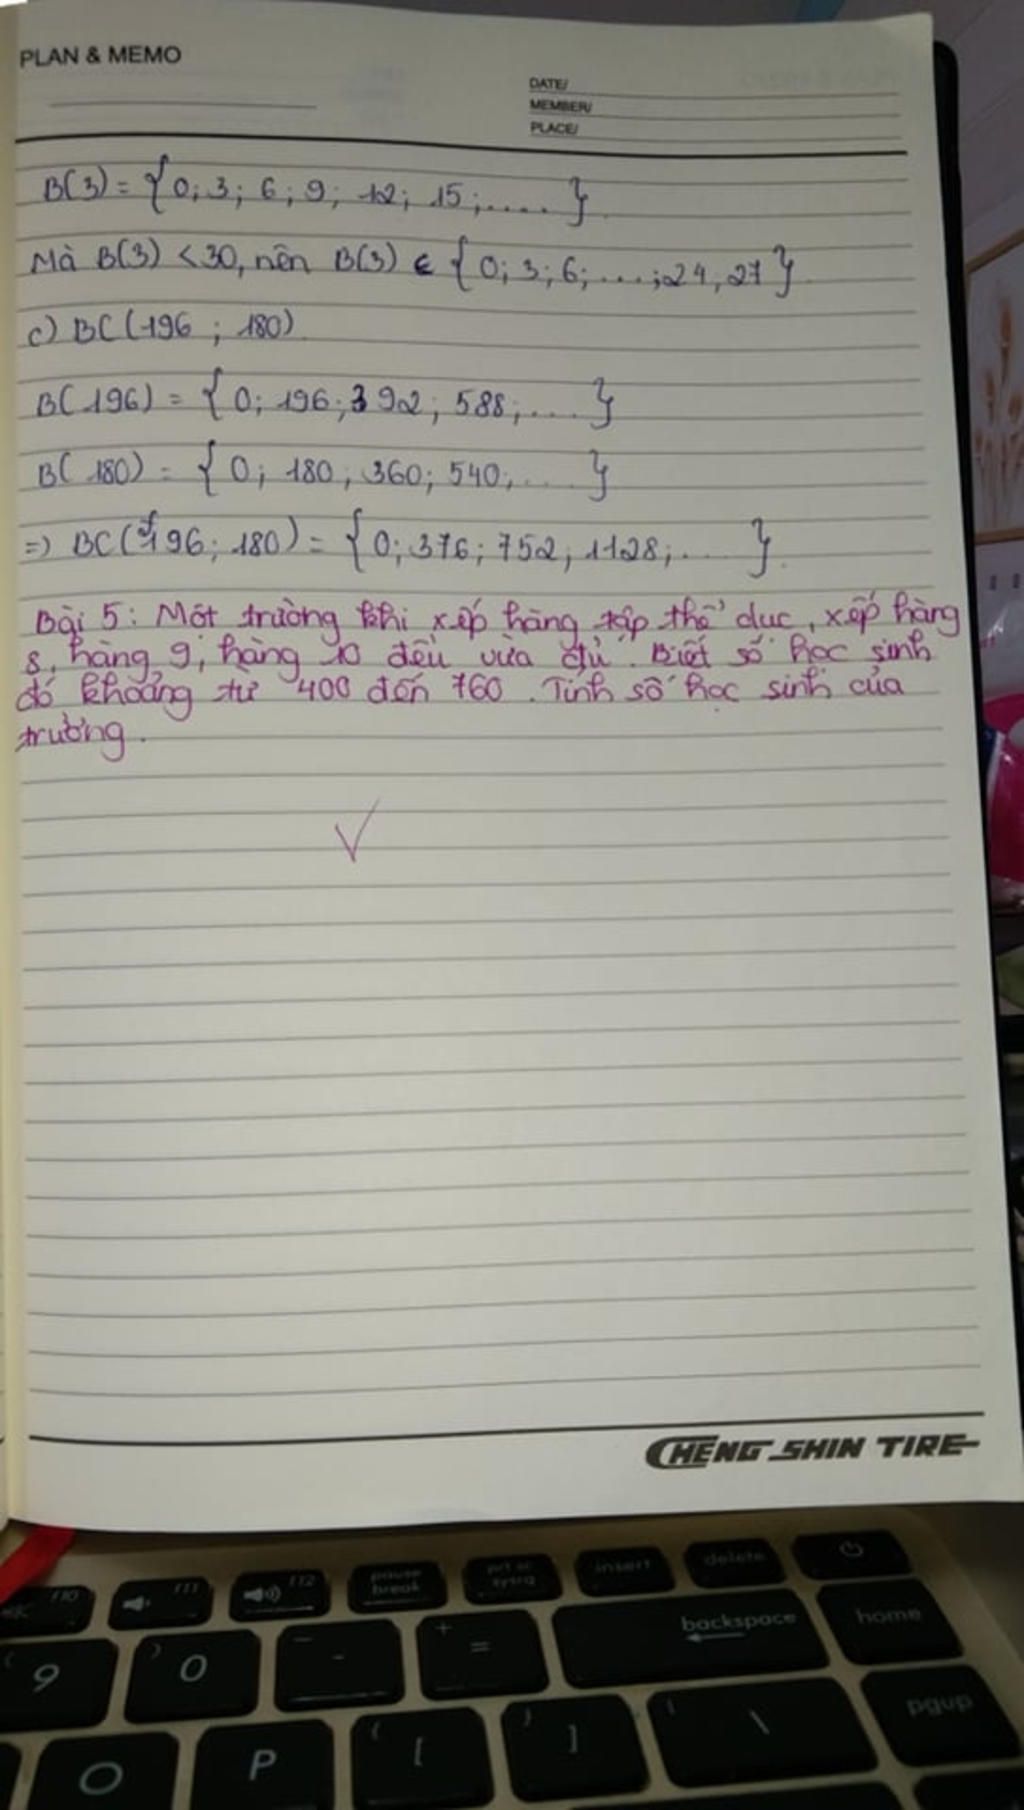 PLAN & MEMO
DATE/
MEMBER/
PLACE/
B(3) = {0; 3; 6; 9; 12; 15; .... }
Mà B(3) < 30, nên B(3) ∈ {0; 3; 6; ...; 24, 27}
c) BC (196 ; 180)
B( 196) = {0; 196; 392; 588; ... }
B( 180) = {0; 180; 360; 540; ... }
=) BC( 196; 180) = {0; 376; 752; 1128; .... }
Bài 5: Một trường khi xếp hàng tập thể dục, xếp hàng
8, hàng 9, hàng 10 đều vừa đủ. Biết số học sinh
đó khoảng từ 400 đến 760. Tính số học sinh của
trường.
CHENG SHIN TIRE
f10
f11
f12
pause
break
prt sc
sysrq
insert
delete
( 9
) 0
- -
+ =
backspace
home
O
P
{ [
} ]
| \
pgup